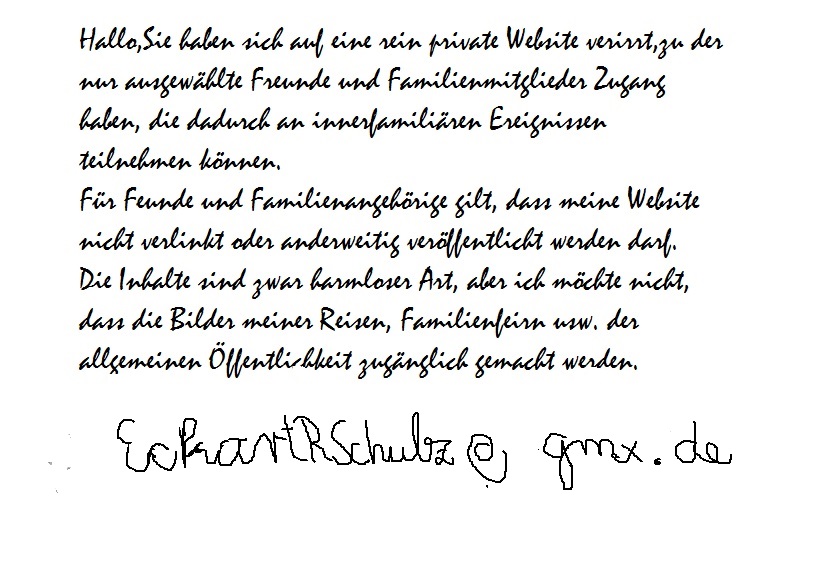 Hallo,Sie haben sich auf eine rein private Website verirrt,zu der
nur ausgewählte Freunde und Familienmitglieder Zugang
haben, die dadurch an innerfamiliären Ereignissen
teilnehmen können.
Für Feunde und Familienangehörige gilt, dass meine Website
nicht verlinkt oder anderweitig veröffentlicht werden darf.
Die Inhalte sind zwar harmloser Art, aber ich möchte nicht,
dass die Bilder meiner Reisen, Familienfeirn usw. der
allgemeinen Öffentlichkeit zugänglich gemacht werden.
EckartRSchulz@ gmx.de